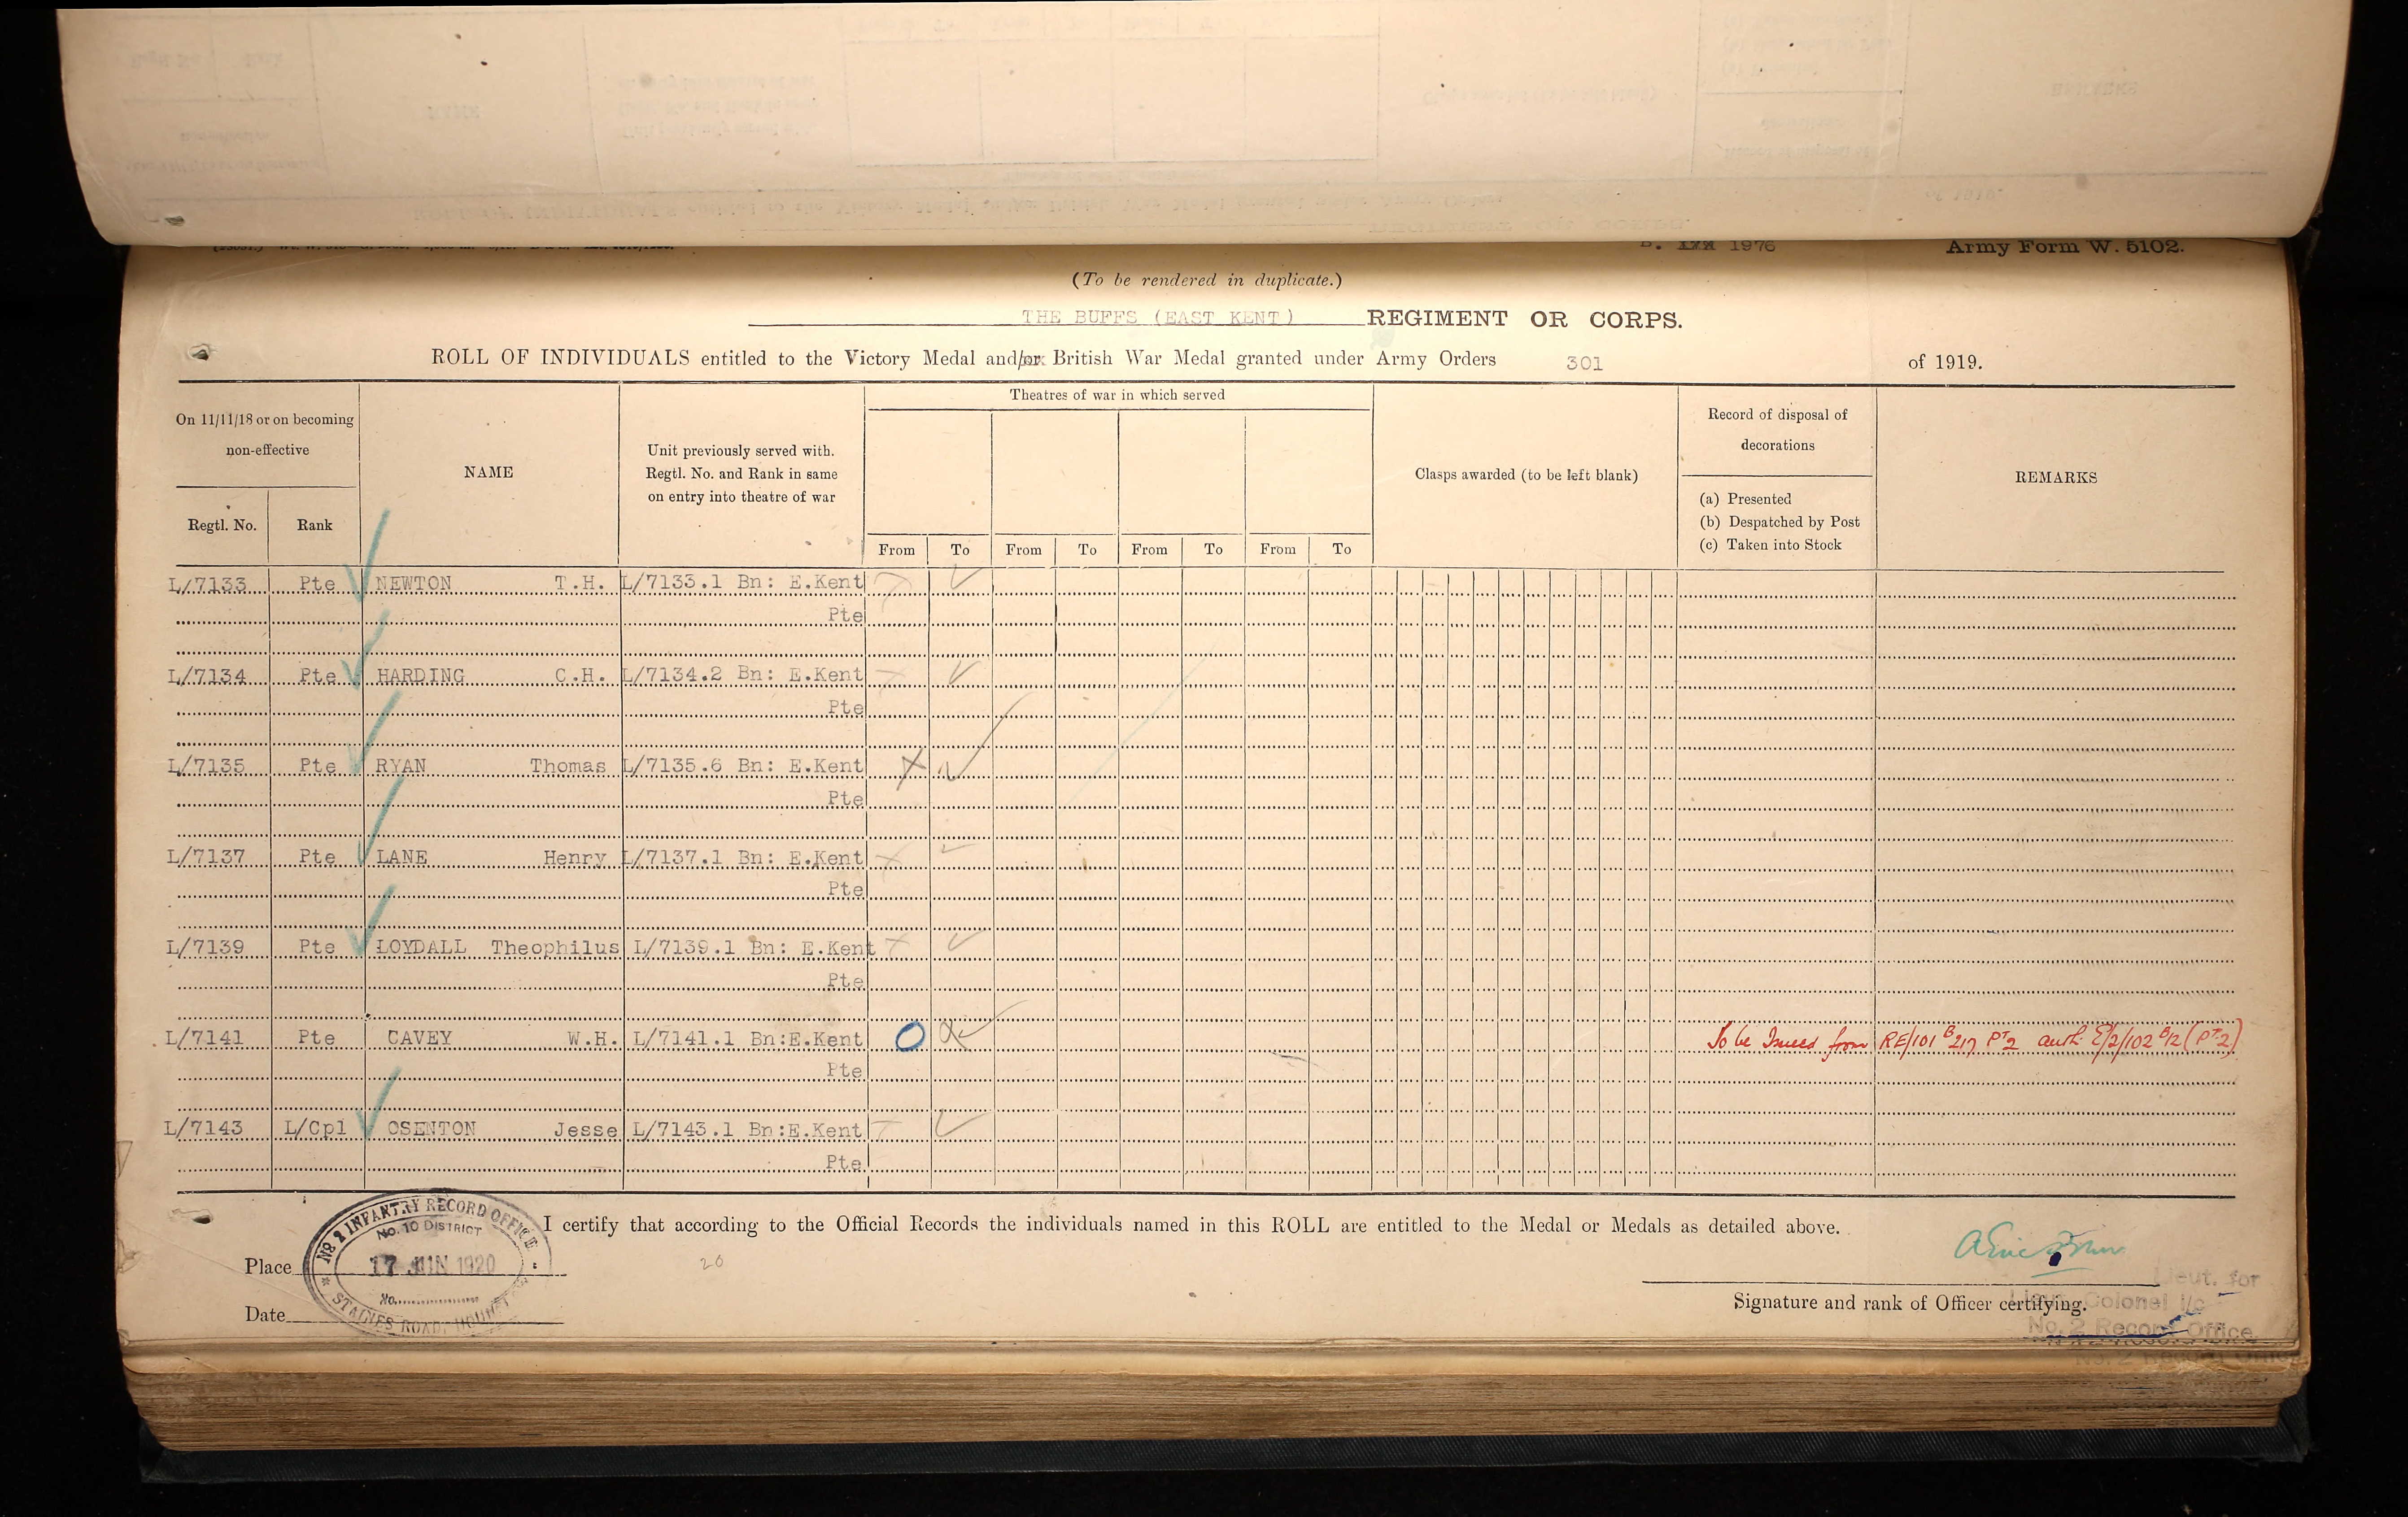 1976
Army Form W. 5102.
(To be rendered in duplicate.)
THE BUFFS (EAST KENT) REGIMENT OR CORPS.
ROLL OF INDIVIDUALS entitled to the Victory Medal and/or British War Medal granted under Army Orders 301 of 1919.
On 11/11/18 or on becoming
non-effective
Regtl. No.
Rank
NAME
Unit previously served with.
Regtl. No. and Rank in same
on entry into theatre of war
Theatres of war in which served
From To From To From To From To
Clasps awarded (to be left blank)
Record of disposal of
decorations
(a) Presented
(b) Despatched by Post
(c) Taken into Stock
REMARKS
L/7133 Pte NEWTON T.H. L/7133.1 Bn: E.Kent
Pte
L/7134 Pte HARDING C.H. L/7134.2 Bn: E.Kent
Pte
L/7135 Pte RYAN Thomas L/7135.6 Bn: E.Kent
Pte
L/7137 Pte LANE Henry L/7137.1 Bn: E.Kent
Pte
L/7139 Pte LOYDALL Theophilus L/7139.1 Bn: E.Kent
Pte
L/7141 Pte CAVEY W.H. L/7141.1 Bn:E.Kent To be Issued from RE/101 B 217 PT 2 auth: E/2/102 B/2 (PT 2)
Pte
L/7143 L/Cpl OSENTON Jesse L/7143.1 Bn:E.Kent
Pte
I certify that according to the Official Records the individuals named in this ROLL are entitled to the Medal or Medals as detailed above.
No 2 INFANTRY RECORD OFFICE
No. 10 DISTRICT
17 JUN 1920
No.
STAINES ROAD,
Place
Date
20
Lieut. for
Signature and rank of Officer certifying.
Colonel i/c
No. 2 Record Office